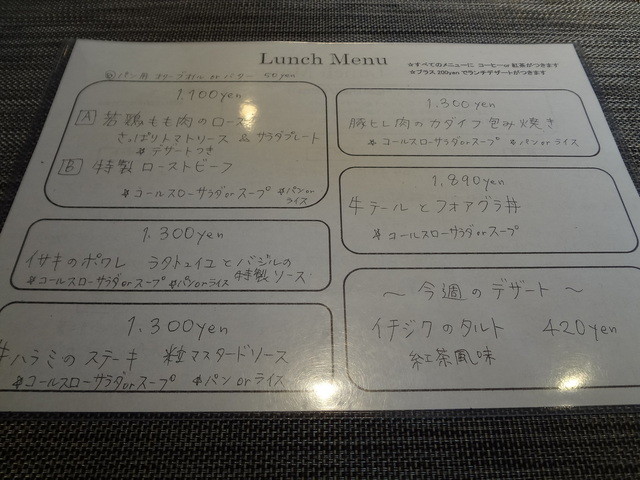 Lunch Menu
☆すべてのメニューに コーヒーor 紅茶がつきます
☆プラス 200yen でランチデザートがつきます
パン用 オリーブオイル or バター 50yen
1.100yen
A 若鶏もも肉のロースト
さっぱりトマトソース & サラダプレート
※デザートつき
B 特製 ローストビーフ
※コールスローサラダorスープ ※パンor
ライス
1.300yen
イサキのポワレ ラタトゥイユとバジルの
特製ソース
※コールスローサラダorスープ ※パンorライス
1.300yen
牛ハラミのステーキ 粒マスタードソース
※コールスローサラダorスープ ※パンorライス
1.300yen
豚ヒレ肉のカダイフ包み焼き
※コールスローサラダorスープ ※パンorライス
1.890yen
牛テールとフォアグラ丼
※コールスローサラダorスープ
～今週のデザート～
イチジクのタルト 420yen
紅茶風味